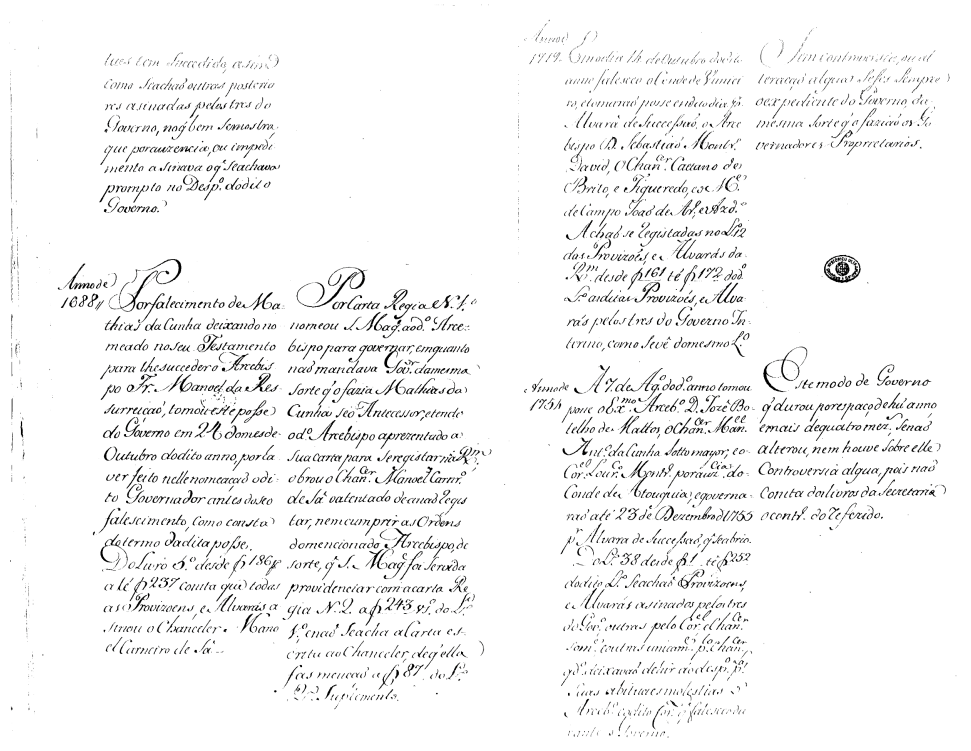 tues tem Succedido, e asim
como Seachaõ outras posterio
res asinadas pelos tres do
Governo, no q̃ bem Semostra,
que por auzencia, ou impedi
mento asinava o q̃ Seachava
prompto no Desp.º do dito
Governo.
Anno de
1688
Por falecimento de Ma-
thias da Cunha deixando no
meado no seu Testamento
para lhe succeder o Arcebis
po Fr. Manoel da Res
surreicaõ, tomou este posse
do Governo em 24 do mes de
Outubro do dito anno, por la
ver feito nelle nomeaçaõ o di
to Governador antes do seo
falescimento, como consta
do termo da dita posse.
Do Livro 5.º desde f 186
a té f 237 consta que todas
as Provizoens, e Alvarás a
sinou o Chanceler Mano
el Carneiro de Sá
Por Carta Regia N.º 1.º
nomeou S. Mag.e ao d.º Arce-
bispo para governar, emquanto
naõ mandava Gov.or da mesma
sorte q̃ o fazia Mathias da
Cunha seo Antecessor, etendo
o d.º Arcebispo aprezentado a
Sua carta para Seregistar na R.m
obrou o Chan.cer Manoel Carnr.º
de Sá o atentado de a naõ Regis
tar, nem cumprir as Ordens
do mencionado Arcebispo, de
sorte, q̃ S. Mag.e foi Servida
providenciar com a carta Re
gia N. 2. a f 243 v.º do L.º
1.º e naõ Seacha a Carta es-
crita ao Chanceler, de q̃ ella
fas mençaõ a f 87 do L.º
2.º Suplemento.
Anno de
1719.
Em o dia 14 de Outubro do dito
anno falesceo o Conde de Vimiei
ro, e tomaraõ posse em o dia p.
Alvará de Successaõ, o Arce
bispo D. Sebastiaõ Montr.º
David, O Chan.cer Caetano de
Brito, e Figueredo, e o M.e
de Campo Joaõ de Ar.º, e Azd.º
Achaõ se Registadas no L.º 12
das Provizoẽs, e Alvarás da
R.m desde f 161 té f 172 do d.º
L.º as ditas Provizoẽs, e Alva-
rás pelos tres do Governo In-
terino, como Se vê do mesmo L.º
Sem controversia, ou al
teraçaõ algua Se fes Sempre
o expediente do Governo, da
mesma sorte q̃ o faziaõ os Go
vernadores Proprietarios.
Anno de
1754
A 7 de Ag.º do d.º anno tomou
posse o Ex.mo Arceb.º D. Jozé Bo
telho de Mattos, o Chan.cer Man.el
Ant.º da Cunha Sottomayor, e o
Cor.el Lour.ço Montr.º por auz.cia do
Conde de Atouguia, e governa-
raõ até 23 de Dezembro de 1755
p.r Alvara de Successaõ, q̃ se abrio.
Do L.º 38 desde f 1 té f 252
do dito L.º Se achaõ Provizoens,
e Alvarás asinados pelos tres
do Gov.º outras pelo Cor.el e Chan.cer
som.e e outras unicam.e p.lo Chan.cer
q̃do deixavaõ de hir ao desp.º p.r
Suas abituaes molestias o
Arceb.º e o dito Cor.el q̃ falesceo du
rante o Governo.
Este modo de Governo
q̃ durou por espaço de hũ anno
e mais de quatro mez.s Se naõ
alterou, nem houve Sobre elle
Controversia algua, pois naõ
Consta dos livros da Secretaria
o contr.º do Referido.